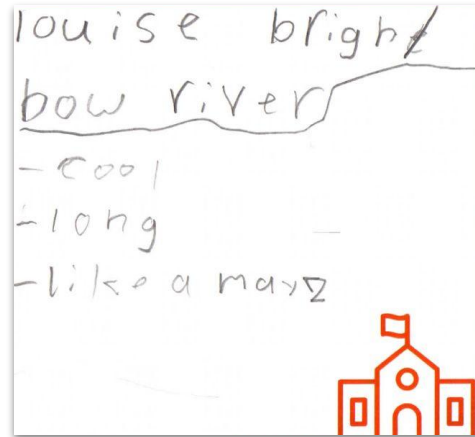 louise bright
bow river
- cool
- long
- like a mayz